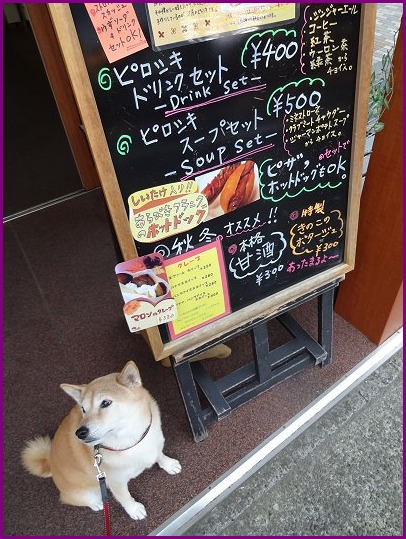 セットOK!
ピロシキ
ドリンクセット
-Drink Set-
¥400
・ジンジャーエール
・コーヒー
・紅茶
・ウーロン茶
・緑茶 から
チョイス。
ピロシキ
スープセット
-Soup Set-
¥500
・ミネストローネ
・クラムミートチャウダー
・ジャーマンポットスープ
から
チョイス。
ピザ、のセットで
ホットドッグもOK。
しいたけ入り!!
あらびきフランク
のホットドック
秋冬オススメ!!
本格
甘酒
¥300
特製
きのこの
ポタージュ
¥300
あったまるよ〜
クレープ
マロンのクレープ